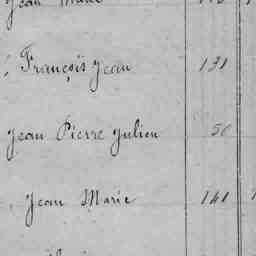 Jean Marie
François Jean 131
Jean Pierre Julien 50
Jean Marie 141